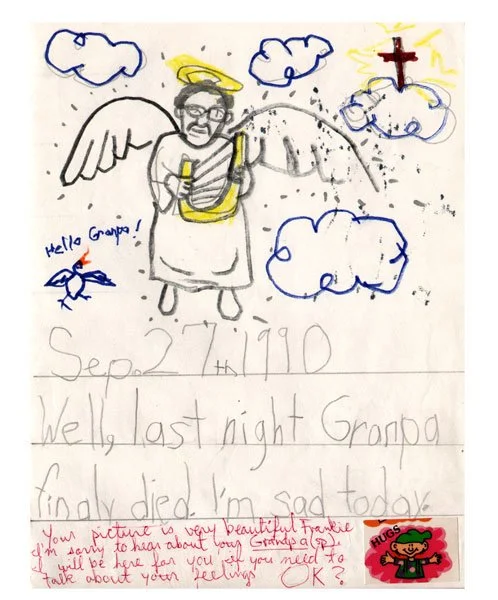 Hello Granpa!
Sep. 27th 1990
Well, last night Granpa
finaly died. I'm sad today.
Your picture is very beautiful Frankie
I'm sorry to hear about your Grandpa (sp).
I will be here for you if you need to
talk about your feelings OK?
HUGS